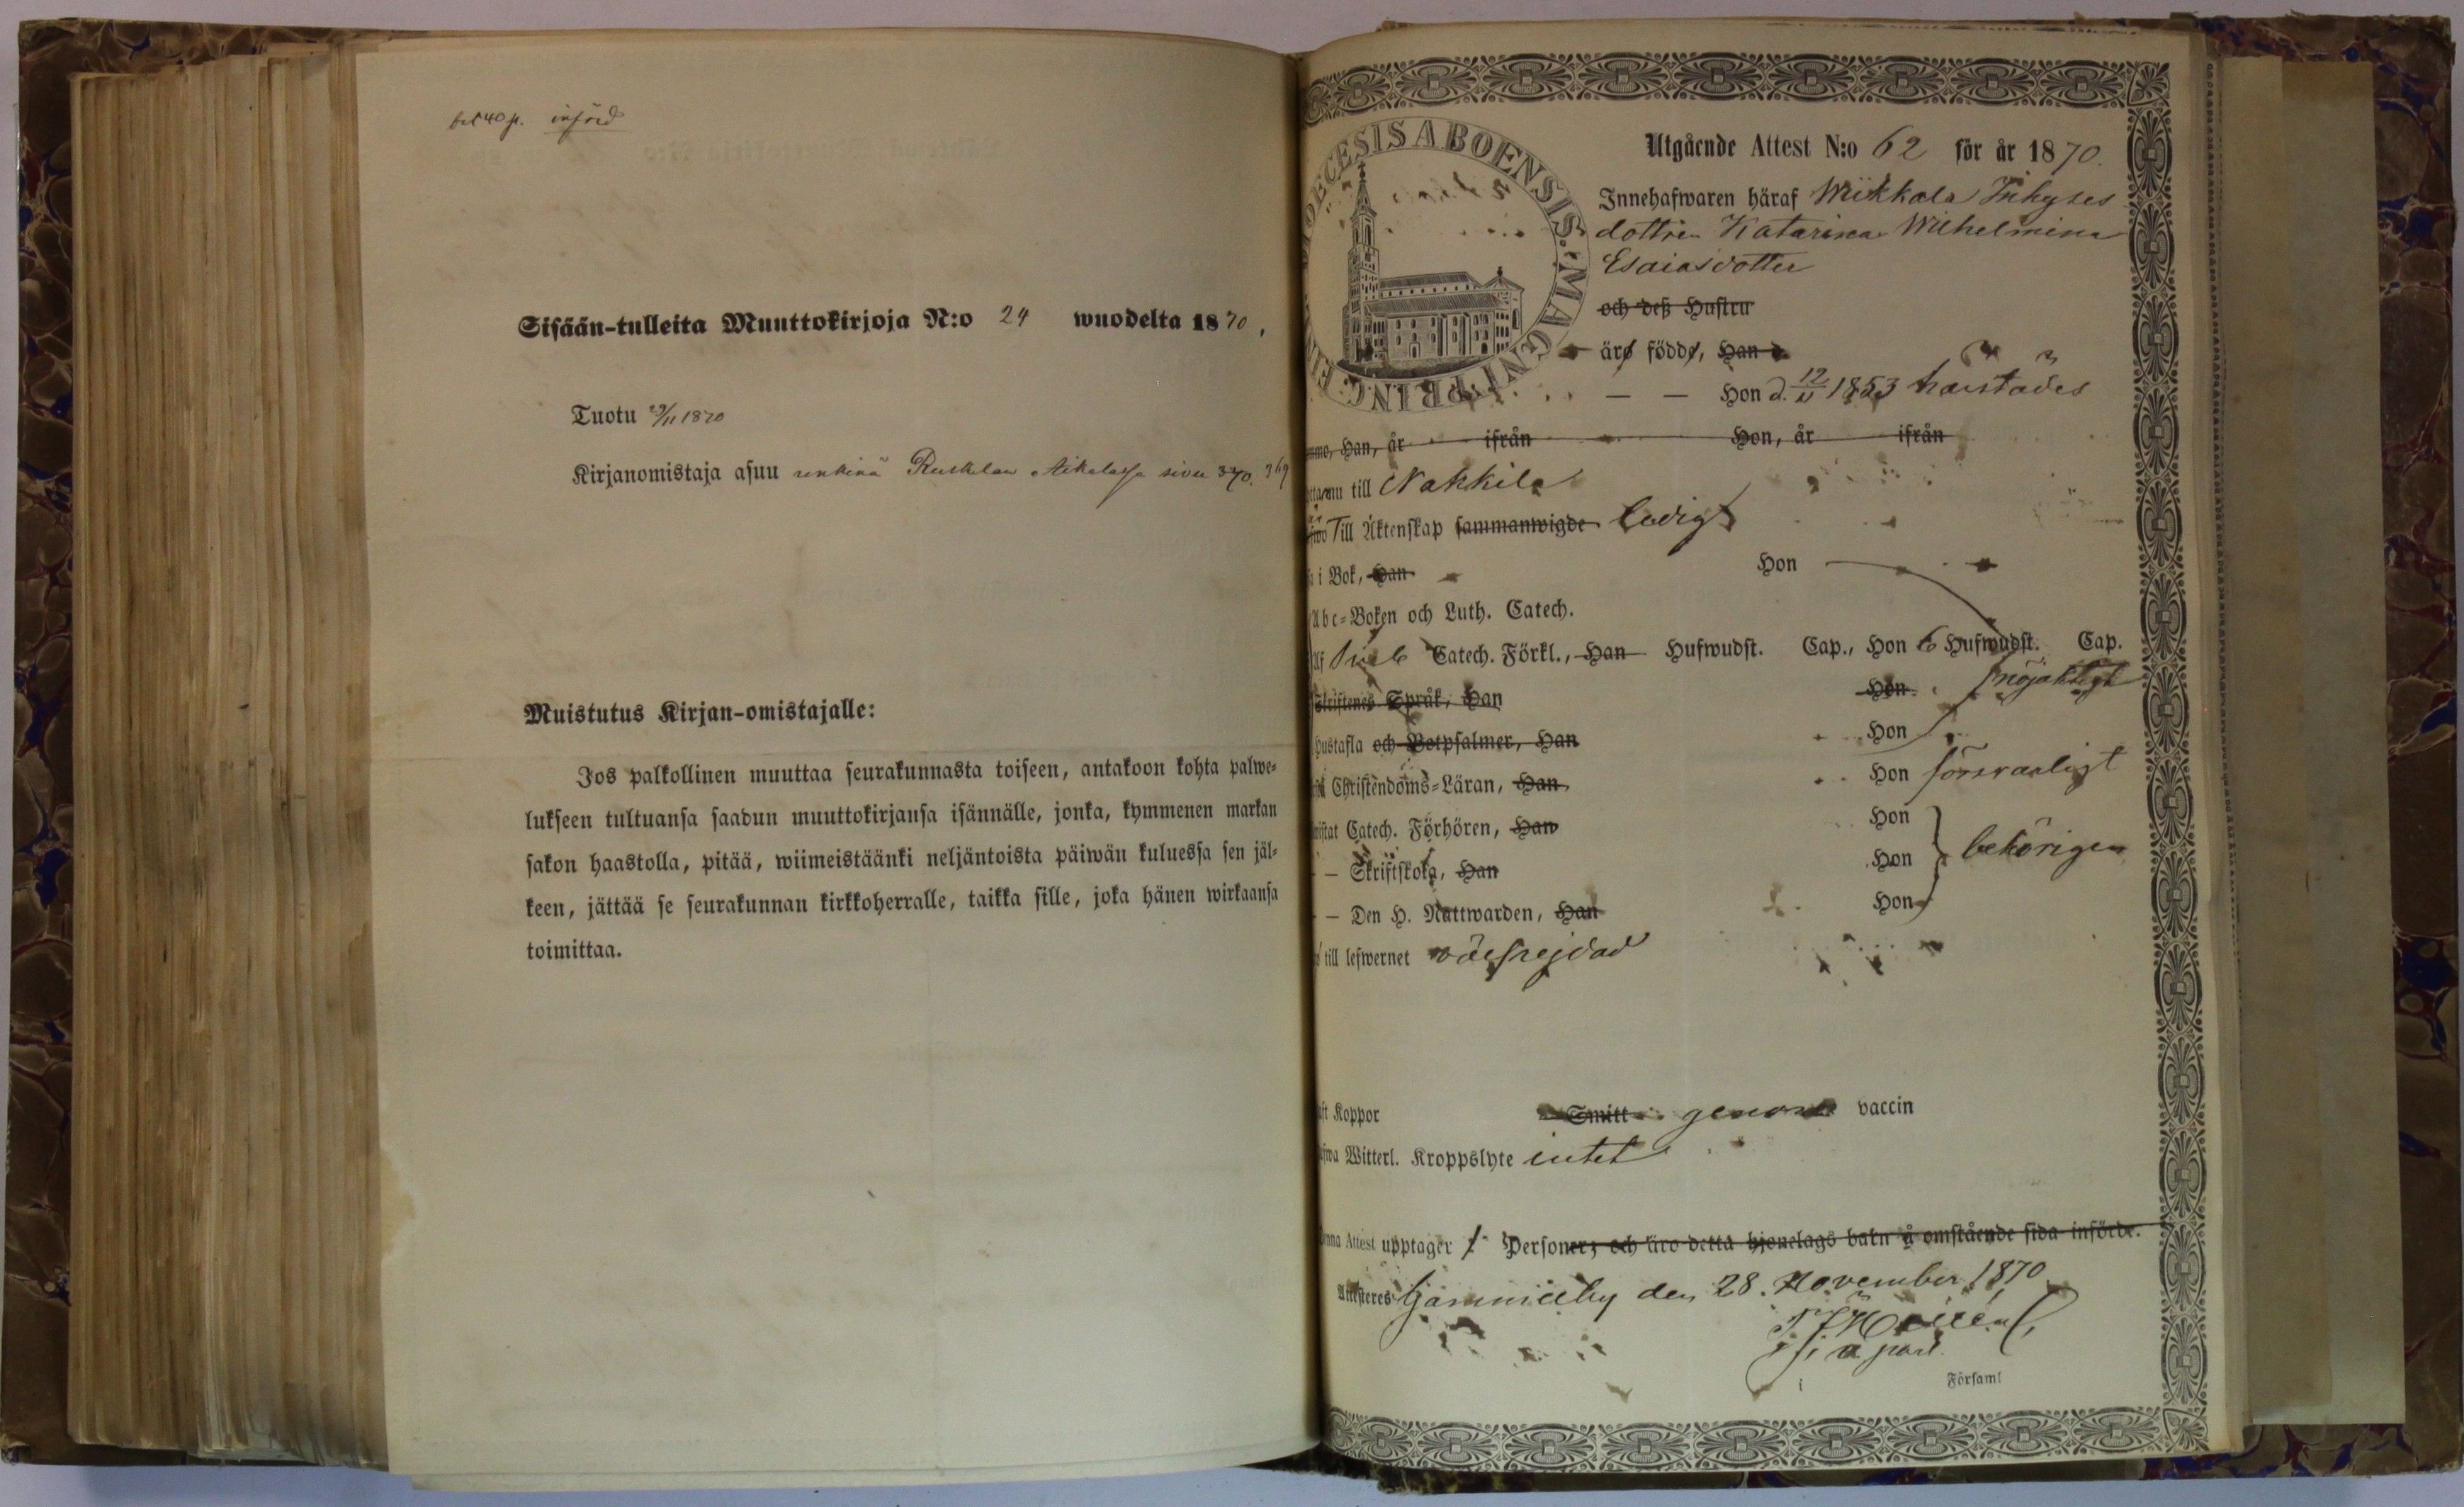 införd
Sisään-tulleita Muuttokirjoja N:o 24 wuodelta 1870.
Tuotu 29/11 1870
Kirjanomistaja asuu renkinä Ruskilan sivu 370. 369
Muistutus Kirjan-omistajalle:
Jos palkollinen muuttaa seurakunnasta toiseen, antakoon kohta palwe-
lukseen tultuansa saadun muuttokirjansa isännälle, jonka, kymmenen markan
sakon haastolla, pitää, wiimeistäänki neljäntoista päiwän kuluessa sen jäl-
keen, jättää se seurakunnan kirkkoherralle, taikka sille, joka hänen wirkaansa
toimittaa.
Utgående Attest N:o 62 för år 1870.
DIOECESIS ABOENSIS. MAGNI PRINC.
Innehafwaren häraf Mikkola Inhyses
dottren Katarina Wilhelmina
Esaiasdotter
och deß Hustru
äro födde, Han
Hon d. 12/11 1853 härstädes
Han, år ifrån Hon, år ifrån
till Nakkila
Till Äktenskap sammanwigde ledig
i Bok, Han Hon
Abc-Boken och Luth. Catech.
Af Catech. Förkl., Han Hufwudst. Cap., Hon 6 Hufwudst. Cap.
Skriftenes Språk, Han Hon nöjaktigt
Hustafla och Botpsalmer, Han Hon
Christendoms-Läran, Han Hon försvarligt
Catech. Förhören, Han Hon
– Skriftskola, Han Hon behörigen
– Den H. Nattwarden, Han Hon
till lefwernet välfrejdad
Koppor Smitt genom vaccin
Witterl. Kroppslyte intet
Attest upptager 1 Personer; och äro detta hjonelags barn å omstående sida införde.
Attesteres Gammelby den 28. November 1870
i Församl